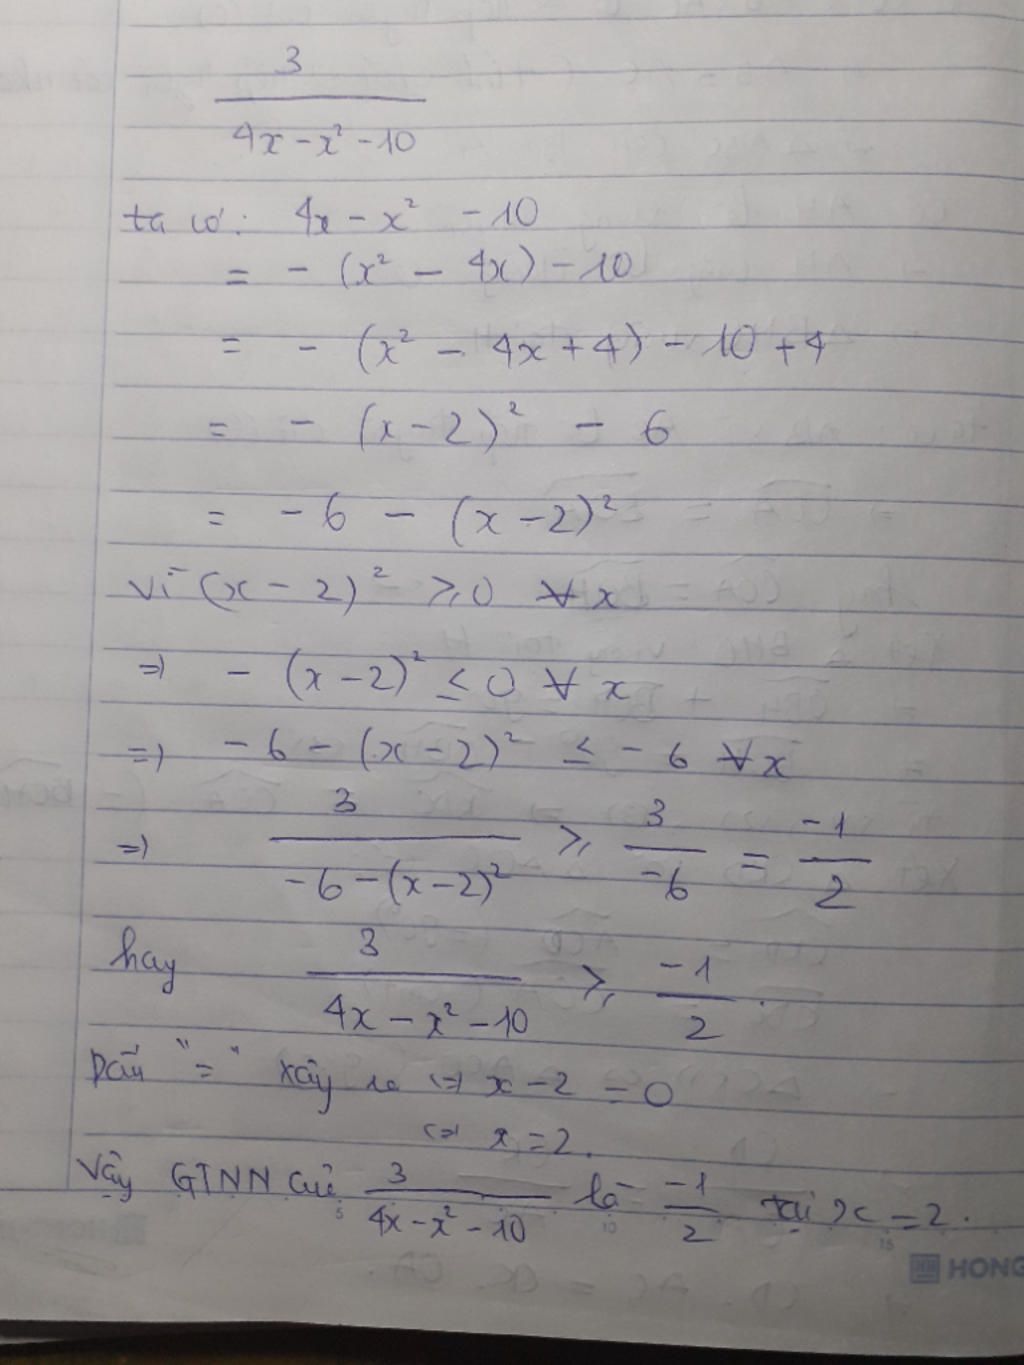 3
4x - x² - 10
ta có: 4x - x² - 10
= - (x² - 4x) - 10
= - (x² - 4x + 4) - 10 + 4
= - (x - 2)² - 6
= - 6 - (x - 2)²
vì (x - 2)² ⩾ 0 ∀ x
⇒ - (x - 2)² ≤ 0 ∀ x
⇒ - 6 - (x - 2)² ≤ - 6 ∀ x
⇒ 3 / (-6 - (x - 2)²) ⩾ 3 / -6 = -1 / 2
hay 3 / (4x - x² - 10) ⩾ -1 / 2 .
Dấu "=" xảy ra ⇔ x - 2 = 0
⇔ x = 2.
Vậy GTNN của 3 / (4x - x² - 10) là -1 / 2 tại x = 2.
5 10 15
HONG